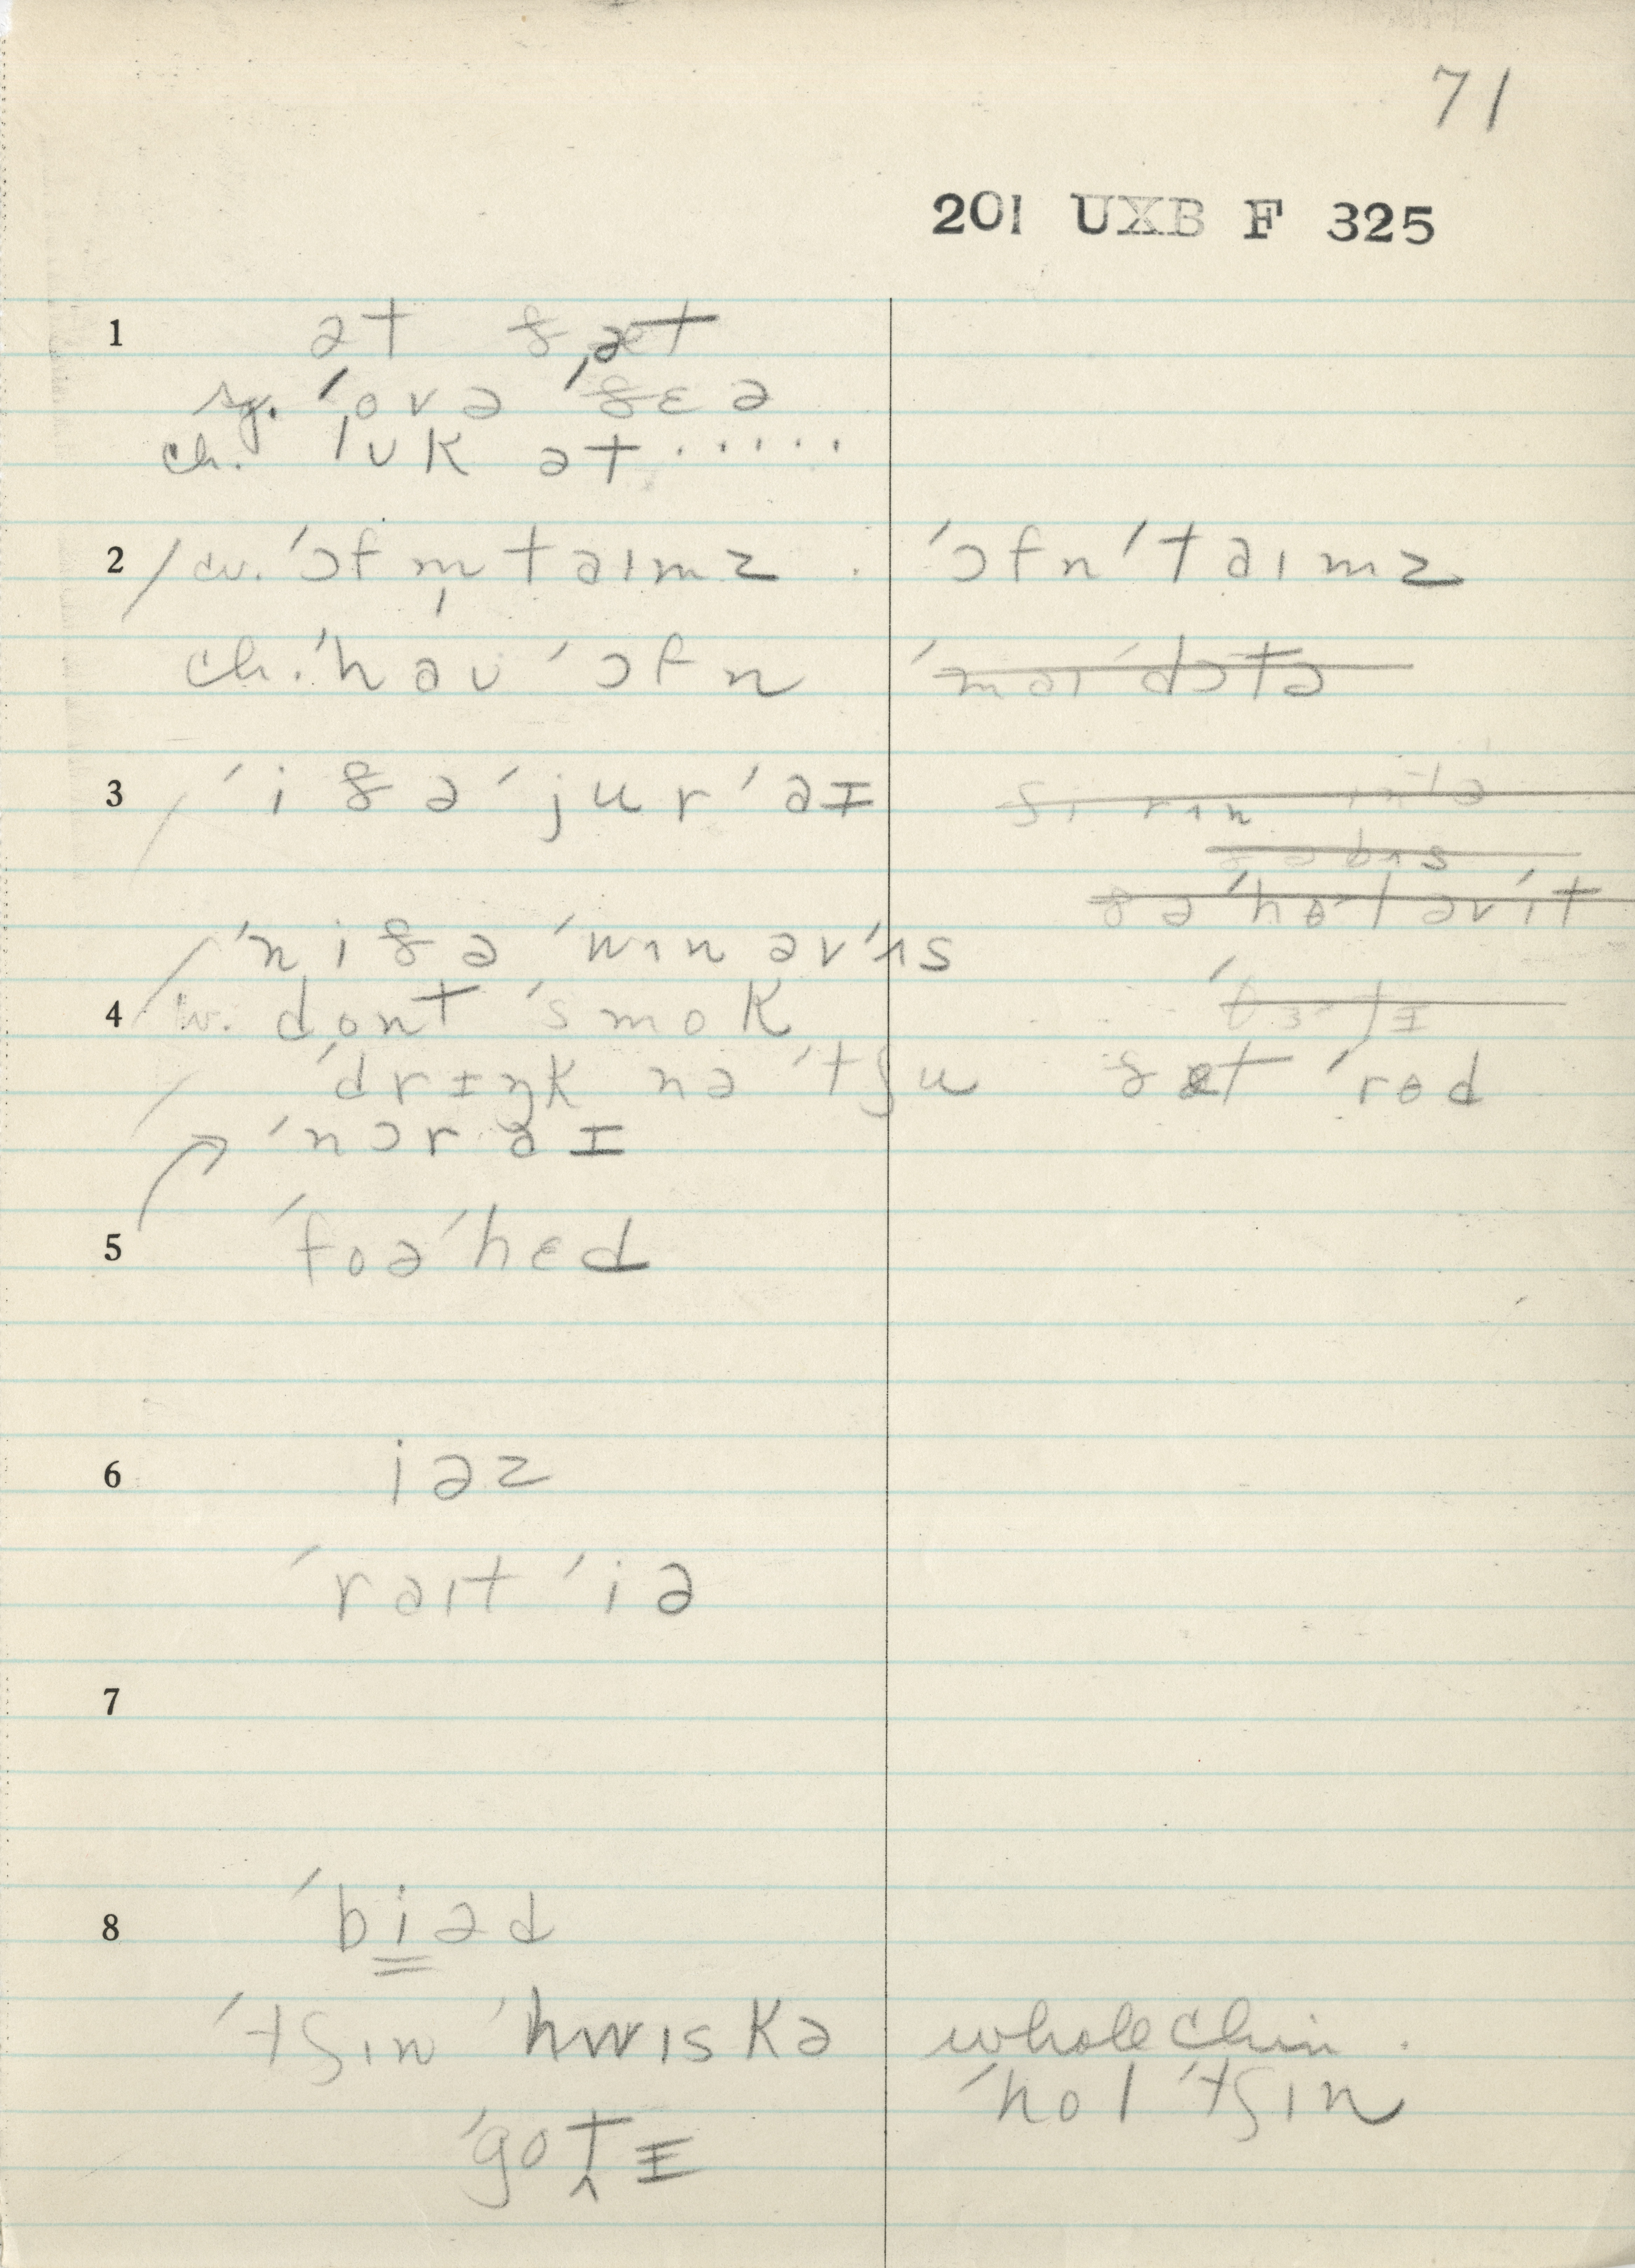 71
201 UXB F 325
1 ət ðˌæt
sg. ˈovə ˈðɛə
ch. lʊk ət .....
2 / cv. ˈɔfm̩taɪmz . ˈɔfnˈtaɪmz
ch. ˈhaʊ ˈɔfn ˈmaɪˈdɔtə
3 / ˈiðəˈjurˈaɪ
ðəˈhol əvˈɪt
/ ˈniðə ˈwʌn əvˈʌs
4 w. dont ˈsmok
ˈdrɪŋk nəˈtʃu ðæt ˈrod
ˈnɔr aɪ
5 ˈfoəˈhɛd
6 iəz
ˈraɪt ˈiə
7
8 ˈbiəd
ˈtʃɪn ˈhwɪskə whole chin.
ˈhol ˈtʃɪn
ˈgot̬ɪ